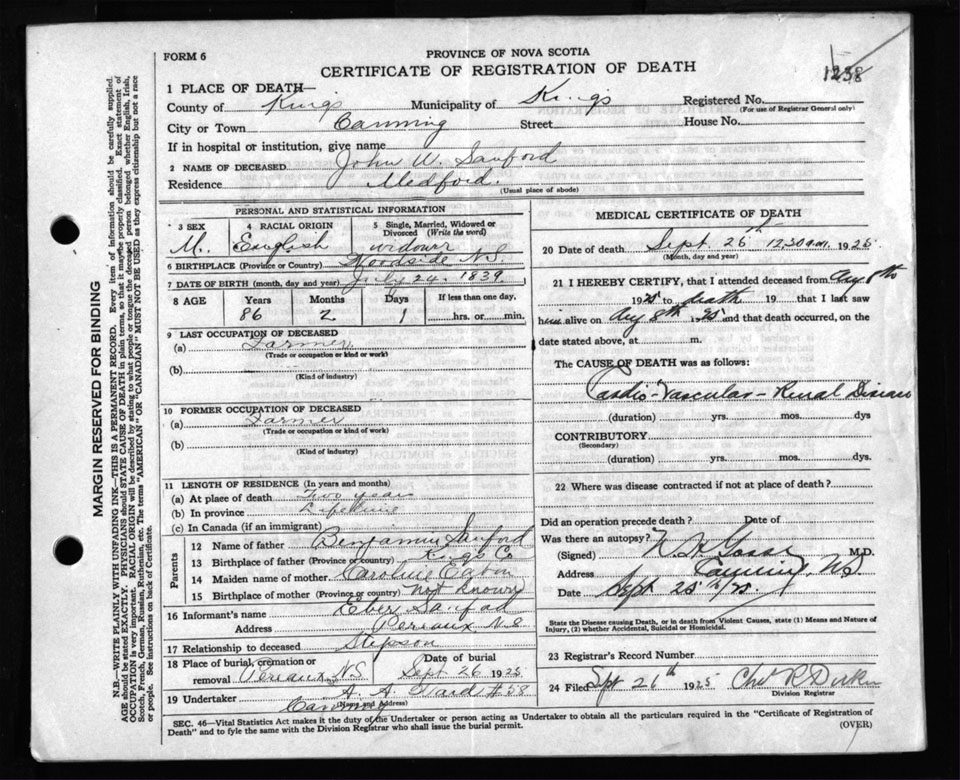 FORM 6
PROVINCE OF NOVA SCOTIA
CERTIFICATE OF REGISTRATION OF DEATH
1258
1 PLACE OF DEATH—
County of Kings Municipality of Kings Registered No.
(For use of Registrar General only)
City or Town Canning Street House No.
If in hospital or institution, give name
2 NAME OF DECEASED John W. Sanford
Residence Medford.
(Usual place of abode)
PERSONAL AND STATISTICAL INFORMATION
3 SEX 4 RACIAL ORIGIN 5 Single, Married, Widowed or Divorced (Write the word)
M. English widower
6 BIRTHPLACE (Province or Country) Woodside N.S.
7 DATE OF BIRTH (month, day and year) July 24. 1839.
8 AGE Years Months Days If less than one day,
86 2 1 hrs. or min.
9 LAST OCCUPATION OF DECEASED
(a) Farmer.
(Trade or occupation or kind of work)
(b)
(Kind of industry)
10 FORMER OCCUPATION OF DECEASED
(a) Farmer
(Trade or occupation or kind of work)
(b)
(Kind of industry)
11 LENGTH OF RESIDENCE (In years and months)
(a) At place of death Two years
(b) In province Lifetime
(c) In Canada (if an immigrant)
Parents
12 Name of father Benjamin Sanford
13 Birthplace of father (Province or country) Kings Co
14 Maiden name of mother Caroline
15 Birthplace of mother (Province or country) not known
16 Informant's name Eber Sanford
Address Pereaux N.S
17 Relationship to deceased Stepson
18 Place of burial, cremation or removal Pereaux, N.S Date of burial Sept 26 1925
19 Undertaker A. A. Ward #58
(Name and Address)
Canning
MEDICAL CERTIFICATE OF DEATH
20 Date of death Sept. 26th 12.30 a.m. 1925
(Month, day and year)
21 I HEREBY CERTIFY, that I attended deceased from Aug 8th
1925 to death 19 that I last saw
him alive on Aug 8th 1925 and that death occurred, on
date stated above, at m.
The CAUSE OF DEATH was as follows:
Cardio-Vascular-Renal Disease
(duration) yrs. mos. dys.
CONTRIBUTORY.
(Secondary)
(duration) yrs. mos. dys.
22 Where was disease contracted if not at place of death?
Did an operation precede death? Date of
Was there an autopsy?
(Signed) M.D.
Address Canning, NS.
Date Sept 25
State the Disease causing Death, or in death from Violent Causes, state (1) Means and Nature of Injury, (2) whether Accidental, Suicidal or Homicidal.
23 Registrar's Record Number
24 Filed Sept 26th 1925
Division Registrar
SEC. 46—Vital Statistics Act makes it the duty of the Undertaker or person acting as Undertaker to obtain all the particulars required in the "Certificate of Registration of
Death" and to fyle the same with the Division Registrar who shall issue the burial permit.
(OVER)
MARGIN RESERVED FOR BINDING
N.B.—WRITE PLAINLY WITH UNFADING INK—THIS IS A PERMANENT RECORD. Every item of information should be carefully supplied.
AGE should be stated EXACTLY. PHYSICIANS should STATE CAUSE OF DEATH in plain terms, so that it may be properly classified. Exact statement of
OCCUPATION is very important. RACIAL ORIGIN will be described by stating to what people or tongue the deceased person belonged whether English, Irish,
Scotch, French, German, Russian, Ruthenian, etc. The terms "AMERICAN" OR "CANADIAN" MUST NOT BE USED as they express citizenship but not a race
or people. See instructions on back of Certificate.